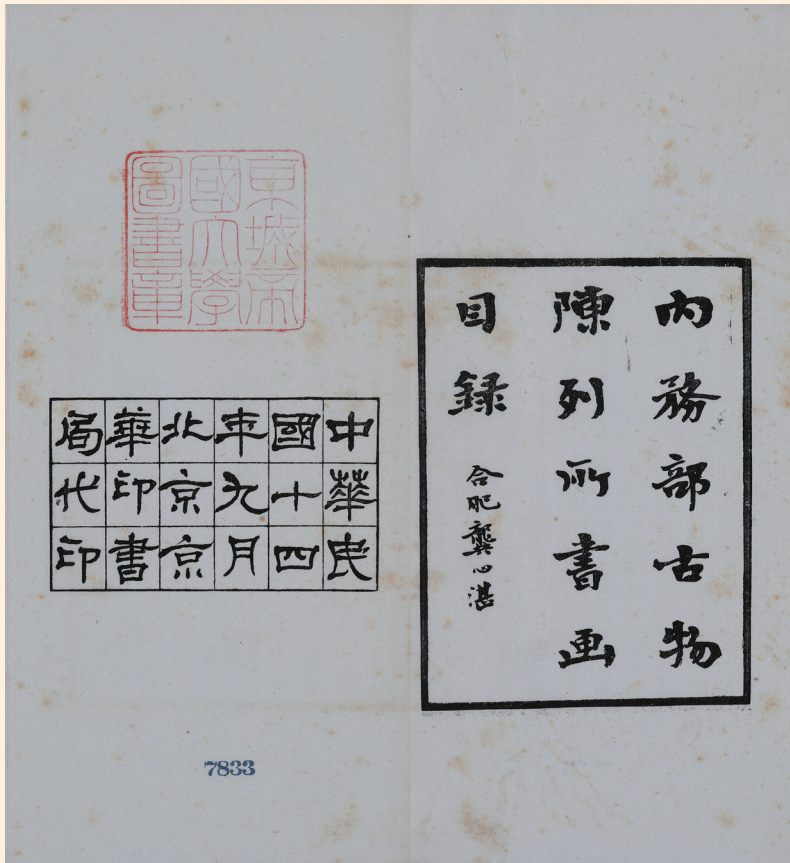 內務部古物
陳列所書画
目録
合肥龔心湛
京城帝
國大學
圖書章
中華民
國十四
年九月
北京京
華印書
局代印
7833